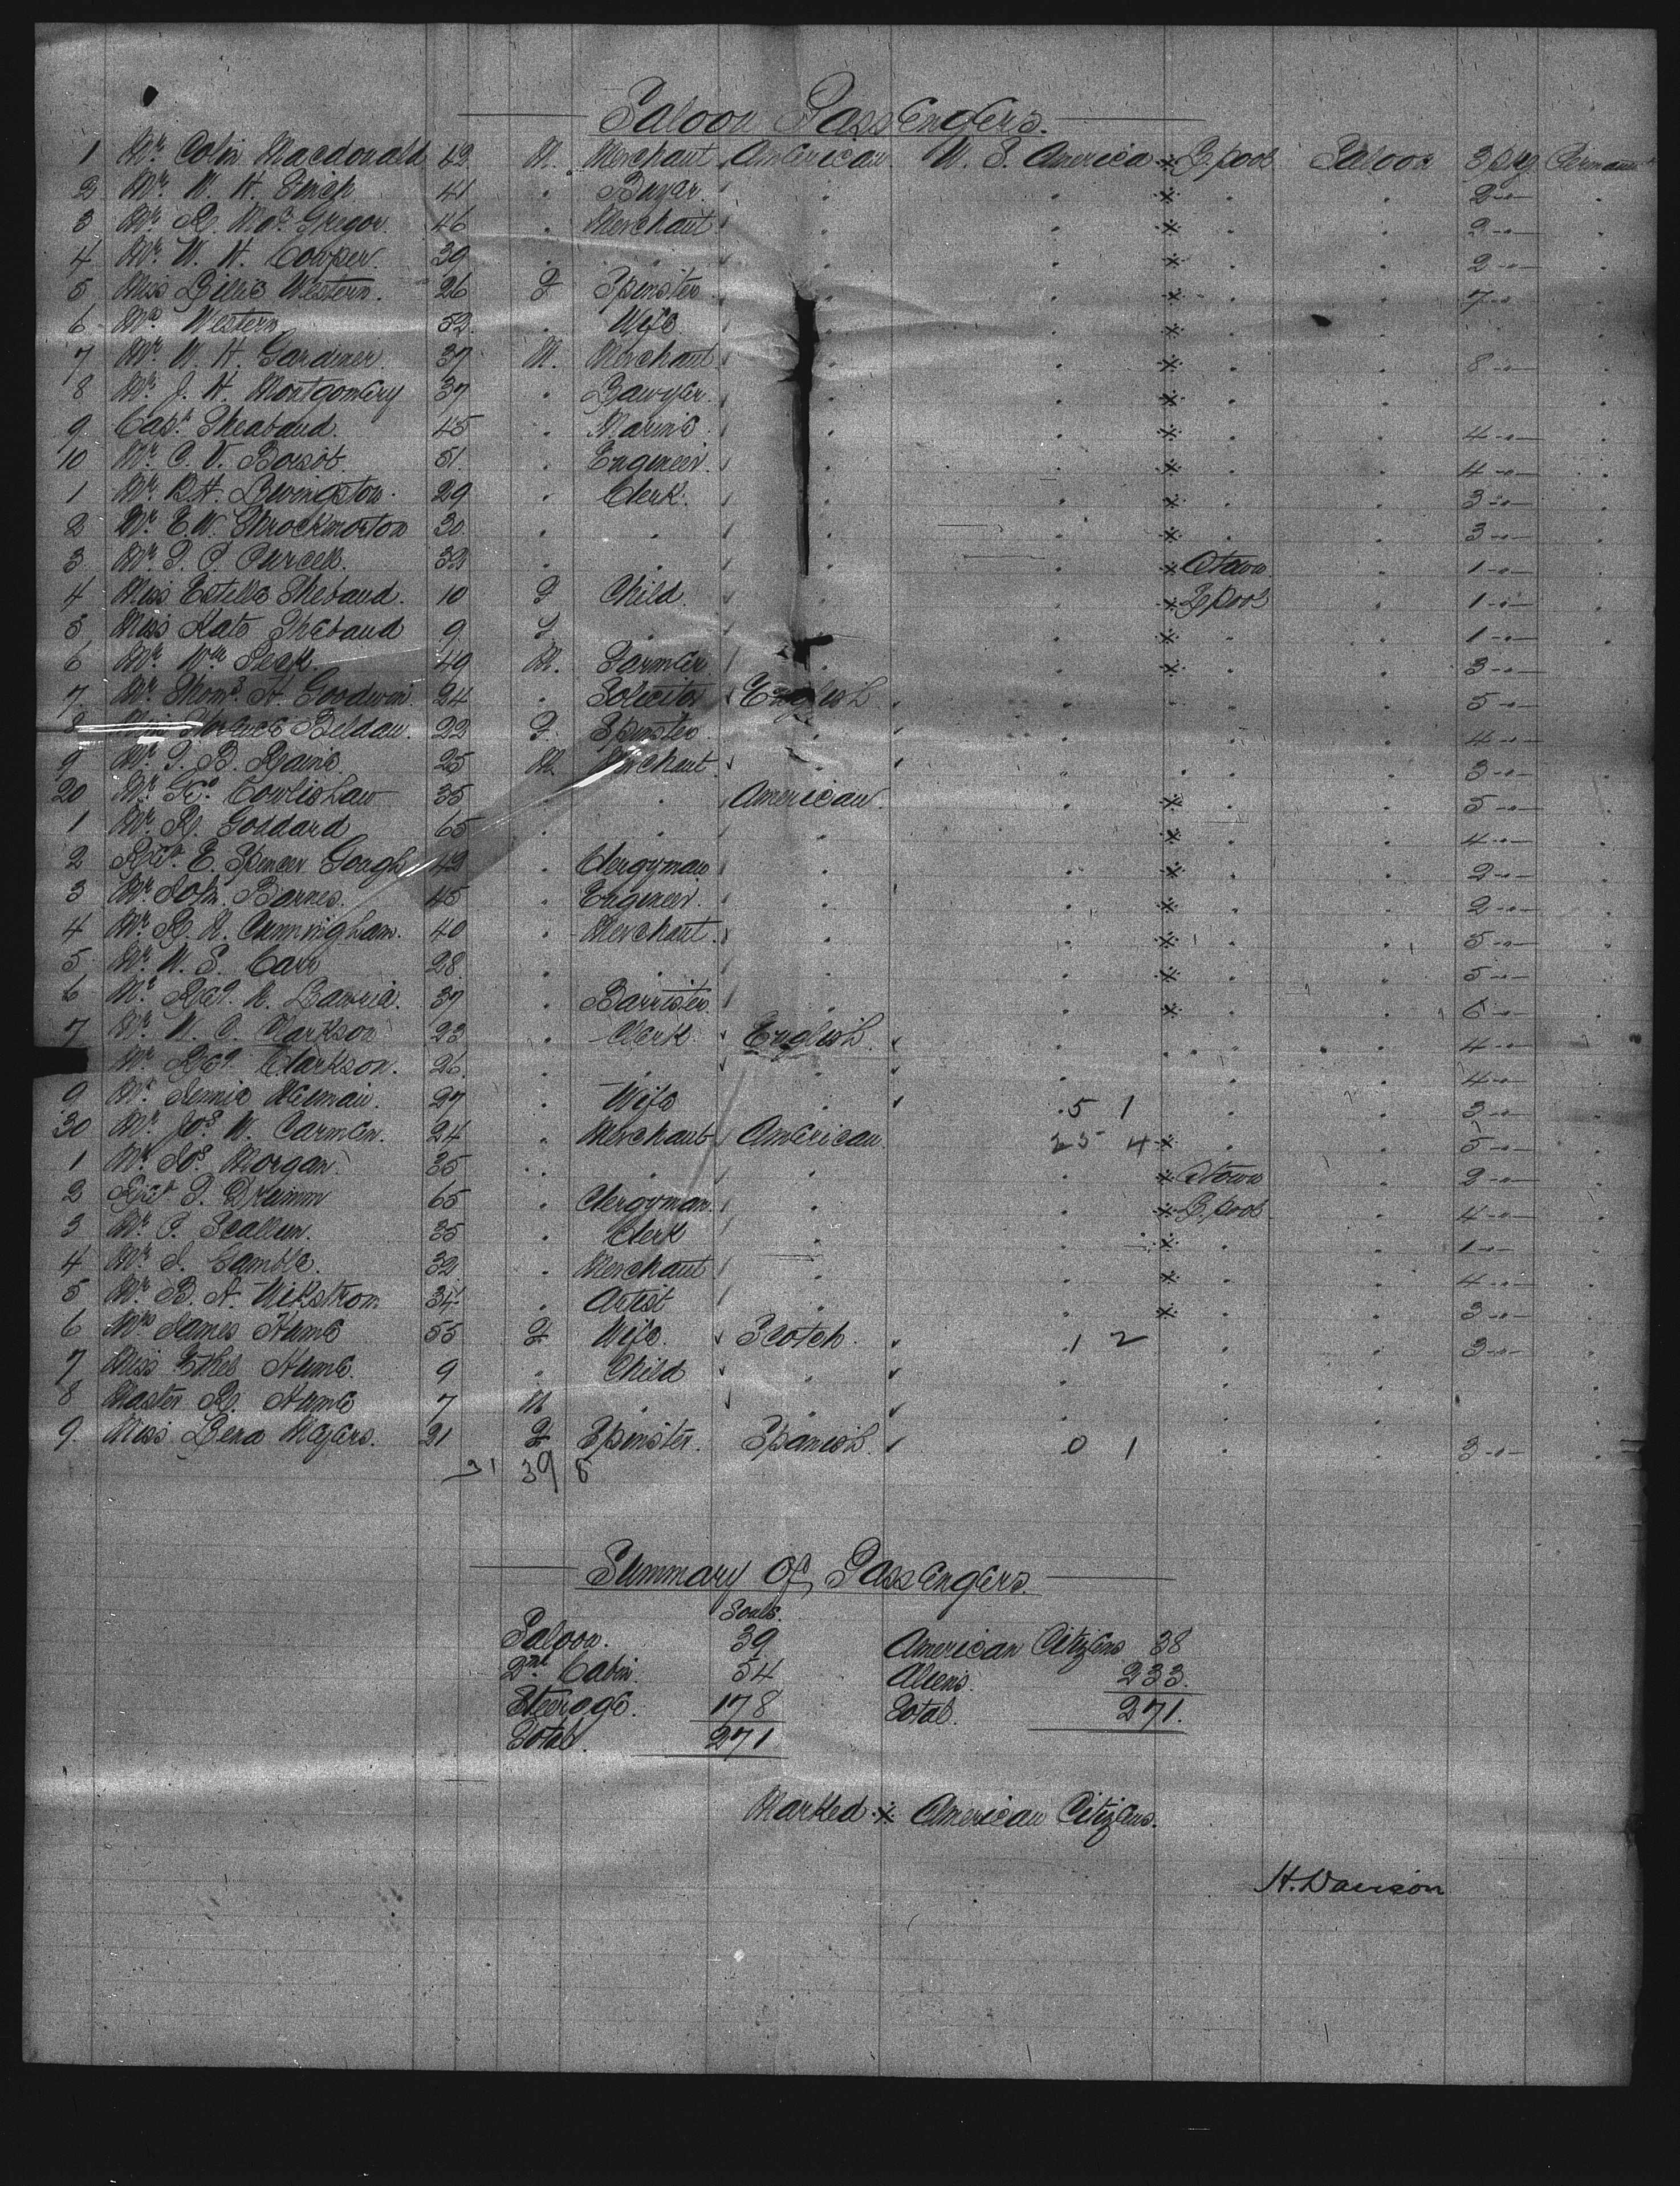 Saloon Passengers.
1 Mr. Colin Macdonald 42 M. Merchant American U. S. America ※ L'pool Saloon 3 pkg Permanent
2 Mr. W. H. Finch 41 " Buyer " " ※ " " 2 " "
3 Mr. R. McGregor. 46 " Merchant " " ※ " " 2 " "
4 Mr. W. H. Cowper. 39 " " " " ※ " " 2 " "
5 Miss Lillie Western. 26 F Spinster " " ※ " " 7 " "
6 Mrs Western 52 " Wife " " ※ " "
7 Mr. W. H. Gardiner. 37 M. Merchant " " ※ " " 8 " "
8 Mr. J. H. Montgomery 37 " Lawyer. " " ※ " "
9 Capt. Theabaud. 45 " Marine " " ※ " " 4 " "
10 Mr. C. V. Boisot. 51 " Engineer. " " ※ " " 4 " "
1 Mr. B. H. Livingston. 29 " Clerk. " " ※ " " 3 " "
2 Mr. E. W. Throckmorton 30 " " " " ※ " " 3 " "
3 Mr. P. Purcell. 32 " " " " ※ Qtown " 1 " "
4 Miss Estelle Thebaud. 10 F Child " " ※ L'pool " 1 " "
5 Miss Kate Thebaud 9 F " " " ※ " " 1 " "
6 Mr. Wm Peek. 49 M. Farmer " " ※ " " 3 " "
7 Mr. Thoms. H. Goodwin. 24 " Solicitor English " " " 5 " "
8 Beldau. 22 F. Spinster " " " " 4 " "
9 Mr. B. Raine 25 M. Merchant " " " " 3 " "
20 Mr. Geo. Cowlishaw 35 " " American " ※ " " 5 " "
1 Mr. R. Goddard 65 " " " " ※ " " 4 " "
2 Revd. E. Spencer Gough 42 " Clergyman " " ※ " " 2 " "
3 Mr. John Barnes. 45 " Engineer. " " ※ " " 2 " "
4 Mr. R. H. Cunningham. 40 " Merchant. " " ※ " " 5 " "
5 Mr. W. S. Carr 28 " " " " ※ " " 5 " "
6 Mr. Lawrie. 37 " Barrister. " " ※ " " 6 " "
7 Mr. W. C. Clarkson 23 " Clerk English " " " 4 " "
Mr. Clarkson. 26 " " " " " " 4 " "
9 Jennie 27 " Wife " 5 1 " " 3 " "
30 Mr. Jos. W. Carmen. 24 " Merchant American 25 4 ※ " " 5 " "
1 Mr. Jos. Morgan 35 " " " " ※ Qtown " 2 " "
2 Revd. Drumm 65 " Clergyman. " " ※ L'pool " 4 " "
3 Mr. P. Scallun. 35 " Clerk " " ※ " " 1 " "
4 Mr. J. Gamble. 32 " Merchant " " ※ " " 4 " "
5 Mr. B. A. Wikstrom 34 " Artist " " ※ " " 3 " "
6 Mrs James Hume 55 F Wife. Scotch. 1 2 " " 3 " "
7 Miss Ethel Hume. 9 " Child " " " " "
8 Master R. Hume 7 M " " " " " "
9. Miss Lena Majers. 21 F Spinster. Spanish. 0 1 " " 3 " "
31 39 8
Summary Of Passengers.
Souls.
Saloon. 39 American Citizens 38
2nd Cabin. 54 Aliens. 233.
Steerage. 178 Total. 271.
Total. 271
Marked ※ American Citizens.
H. Davison